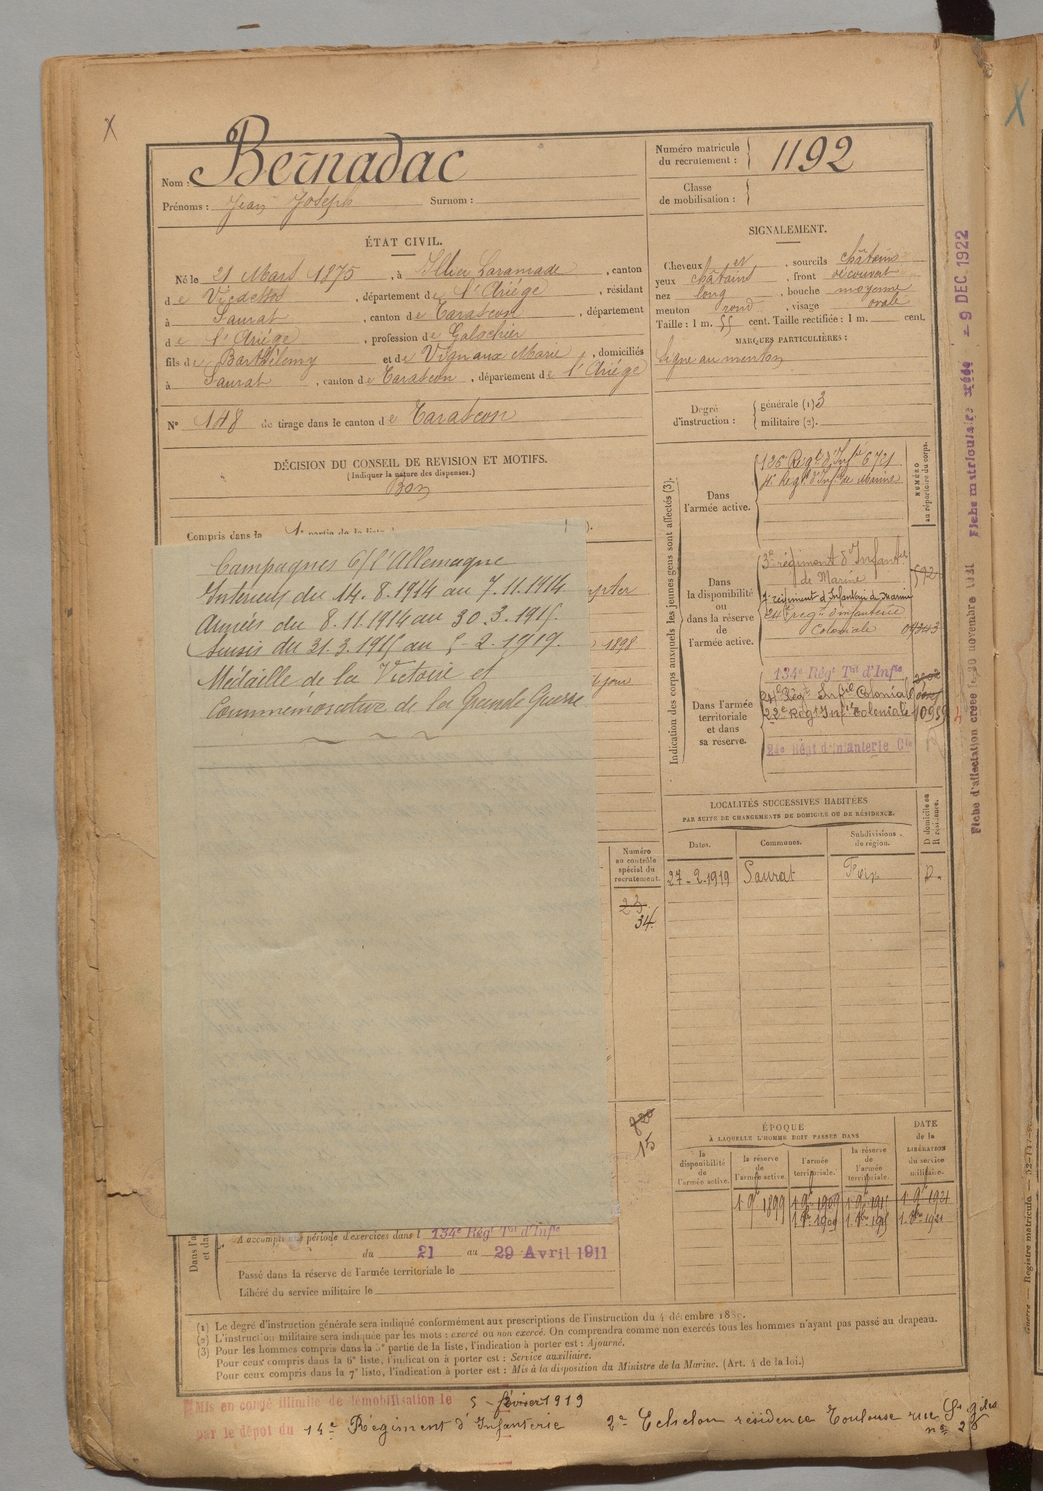 Bernadac
Nom :
Prénoms : Jean Joseph Surnom :
Numéro matricule
du recrutement : 1192
Classe
de mobilisation :
ÉTAT CIVIL.
Né le 21 Mars 1875, à Illier Laramade, canton
de Vicdessos, département de l'Ariège, résidant
à Saurat, canton de Tarascon, département
de l'Ariège, profession de Galochier
fils de Barthélemy et de Vignaux Marie, domiciliés
à Saurat, canton de Tarascon, département de l'Ariège
N° 148 de tirage dans le canton de Tarascon
DÉCISION DU CONSEIL DE REVISION ET MOTIFS.
(Indiquer la nature des dispenses.)
Bon
Compris dans la
SIGNALEMENT.
Cheveux et, sourcils châtains
yeux châtains, front découvert
nez long, bouche moyenne
menton rond, visage ovale
Taille : 1 m. 55 cent. Taille rectifiée : 1 m. cent.
MARQUES PARTICULIÈRES :
signe au menton
Degré
d'instruction :
générale (1) 3
militaire (2).
Campagnes c/ l'Allemagne
Intérieur du 14.8.1914 au 7.11.1914
Armées du 8.11.1914 au 30.3.1915.
Sursis du 31.3.1915 au 5-2.1919.
Médaille de la Victoire et
Commémorative de la Grande Guerre.
1898
jour
Indication des corps auxquels les jeunes gens sont affectés (3).
NUMÉRO
au répertoire du corps.
Dans
l'armée active.
4e Régt d'Infie de Marine
Dans
la disponibilité
ou
dans la réserve
de
l'armée active.
3e régiment d'Infanterie
de Marine
7e régiment d'Infanterie de Marine
24e régt d'infanterie
Coloniale
Dans l'armée
territoriale
et dans
sa réserve.
134e Régt Tal d'Infie
24e Régt Infie Coloniale
22e Régt Infie Coloniale
24e Régt d'Infanterie Cle
LOCALITÉS SUCCESSIVES HABITÉES
PAR SUITE DE CHANGEMENTS DE DOMICILE OU DE RÉSIDENCE.
Dates. Communes. Subdivisions de région. D domicile ou R résidence.
27-2.1919 Saurat Foix D.
Numéro
au contrôle
spécial du
recrutement.
23
34
15
ÉPOQUE
À LAQUELLE L'HOMME DOIT PASSER DANS
DATE
de la
LIBÉRATION
du service
militaire.
la
disponibilité
de
l'armée active.
la réserve
de
l'armée active.
l'armée
territoriale.
la réserve
de
l'armée
territoriale.
A accompli une période d'exercices dans l 134e Régt Tal d'Infie
du 21 au 29 Avril 1911
Passé dans la réserve de l'armée territoriale le
Libéré du service militaire le
(1) Le degré d'instruction générale sera indiqué conformément aux prescriptions de l'instruction du 4 décembre
(2) L'instruction militaire sera indiquée par les mots : exercé ou non exercé. On comprendra comme non exercés tous les hommes n'ayant pas passé au drapeau.
(3) Pour les hommes compris dans la 5e partie de la liste, l'indication à porter est : Ajourné.
Pour ceux compris dans la 6e liste, l'indication à porter est : Service auxiliaire.
Pour ceux compris dans la 7e liste, l'indication à porter est : Mis à la disposition du Ministre de la Marine. (Art. 4 de la loi.)
Mis en congé illimité de démobilisation le 5 février 1919
par le dépôt du 14e Régiment d'Infanterie 2e Echelon résidence Toulouse rue
Fiche d'affectation créée le 30 novembre 1921 Fiche matriculaire créée - 9 DEC 1922